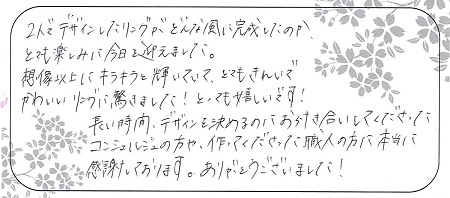 2人でデザインしたリングが、どんな風に完成したのか、
とても楽しみに今日を迎えました。
想像以上にキラキラと輝いていて、とてもきれいで
かわいいリングに驚きました！とっても嬉しいです！
長い時間、デザインを決めるのにお付き合いしてくださった
コンシェルジュの方や、作ってくださった職人の方に本当に
感謝しております。ありがとうございました！